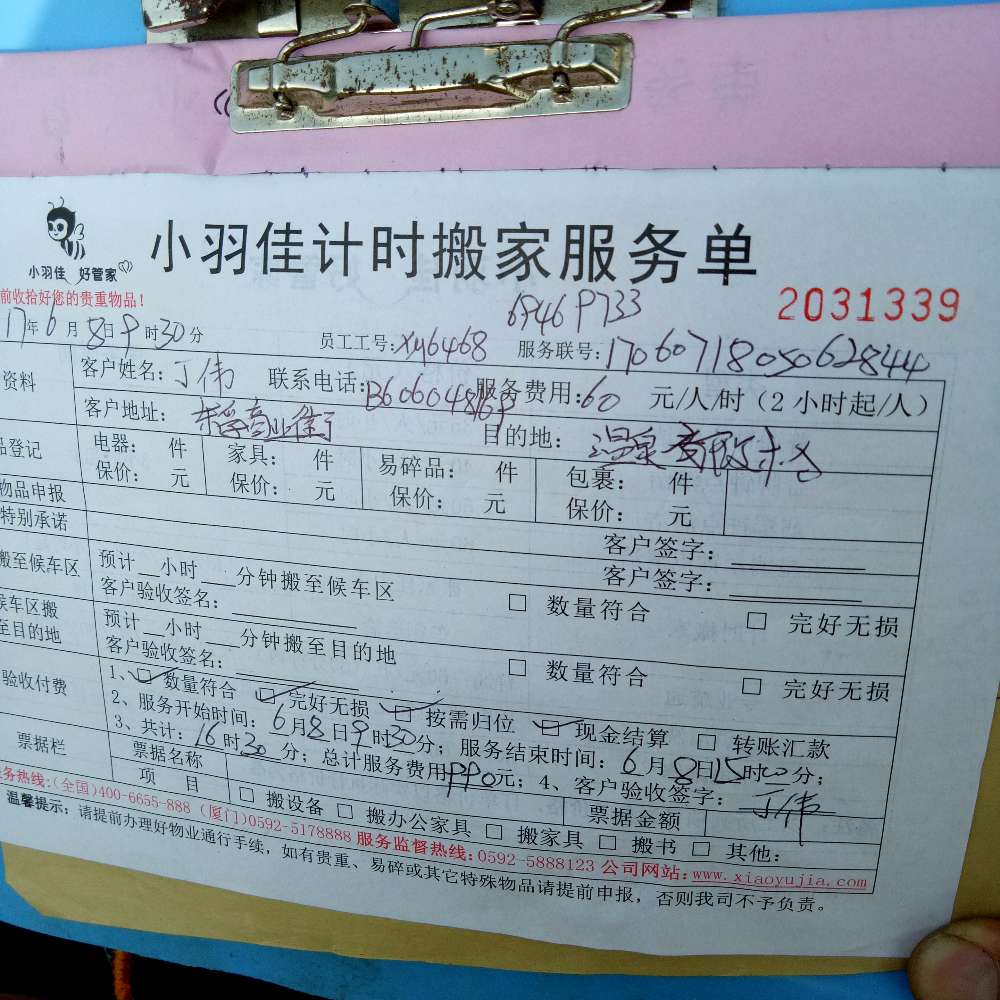 小羽佳 好管家
小羽佳计时搬家服务单
前收拾好您的贵重物品！
2031339
6946 9733
17年6月8日9时30分 员工工号：xy6468 服务联号：170607180506284
资料 客户姓名：丁伟 联系电话：13606048169 服务费用：60 元/人/时（2小时起/人）
客户地址： 商业街 目的地：温泉
品登记 电器： 件 家具： 件 易碎品： 件 包裹： 件
保价： 元 保价： 元 保价： 元 保价： 元
物品申报 客户签字：
特别承诺 客户签字：
搬至候车区 预计__小时___分钟搬至候车区 □ 数量符合 □ 完好无损
客户验收签名：
候车区搬至目的地 预计__小时___分钟搬至目的地 □ 数量符合 □ 完好无损
客户验收签名：
验收付费 1、☑数量符合 ☑完好无损 ☑按需归位 ☑现金结算 □ 转账汇款
2、服务开始时间：6月8日9时30分；服务结束时间：6月8日15时00分；
3、共计：16时30分；总计服务费用990元；4、客户验收签字：丁伟
票据栏 票据名称 票据金额
项 目 □ 搬设备 □ 搬办公家具 □ 搬家具 □ 搬书 □ 其他：
务热线：(全国)400-6655-888 (厦门)0592-5178888 服务监督热线：0592-5888123 公司网站：www.xiaoyujia.com
温馨提示：请提前办理好物业通行手续，如有贵重、易碎或其它特殊物品请提前申报，否则我司不予负责。